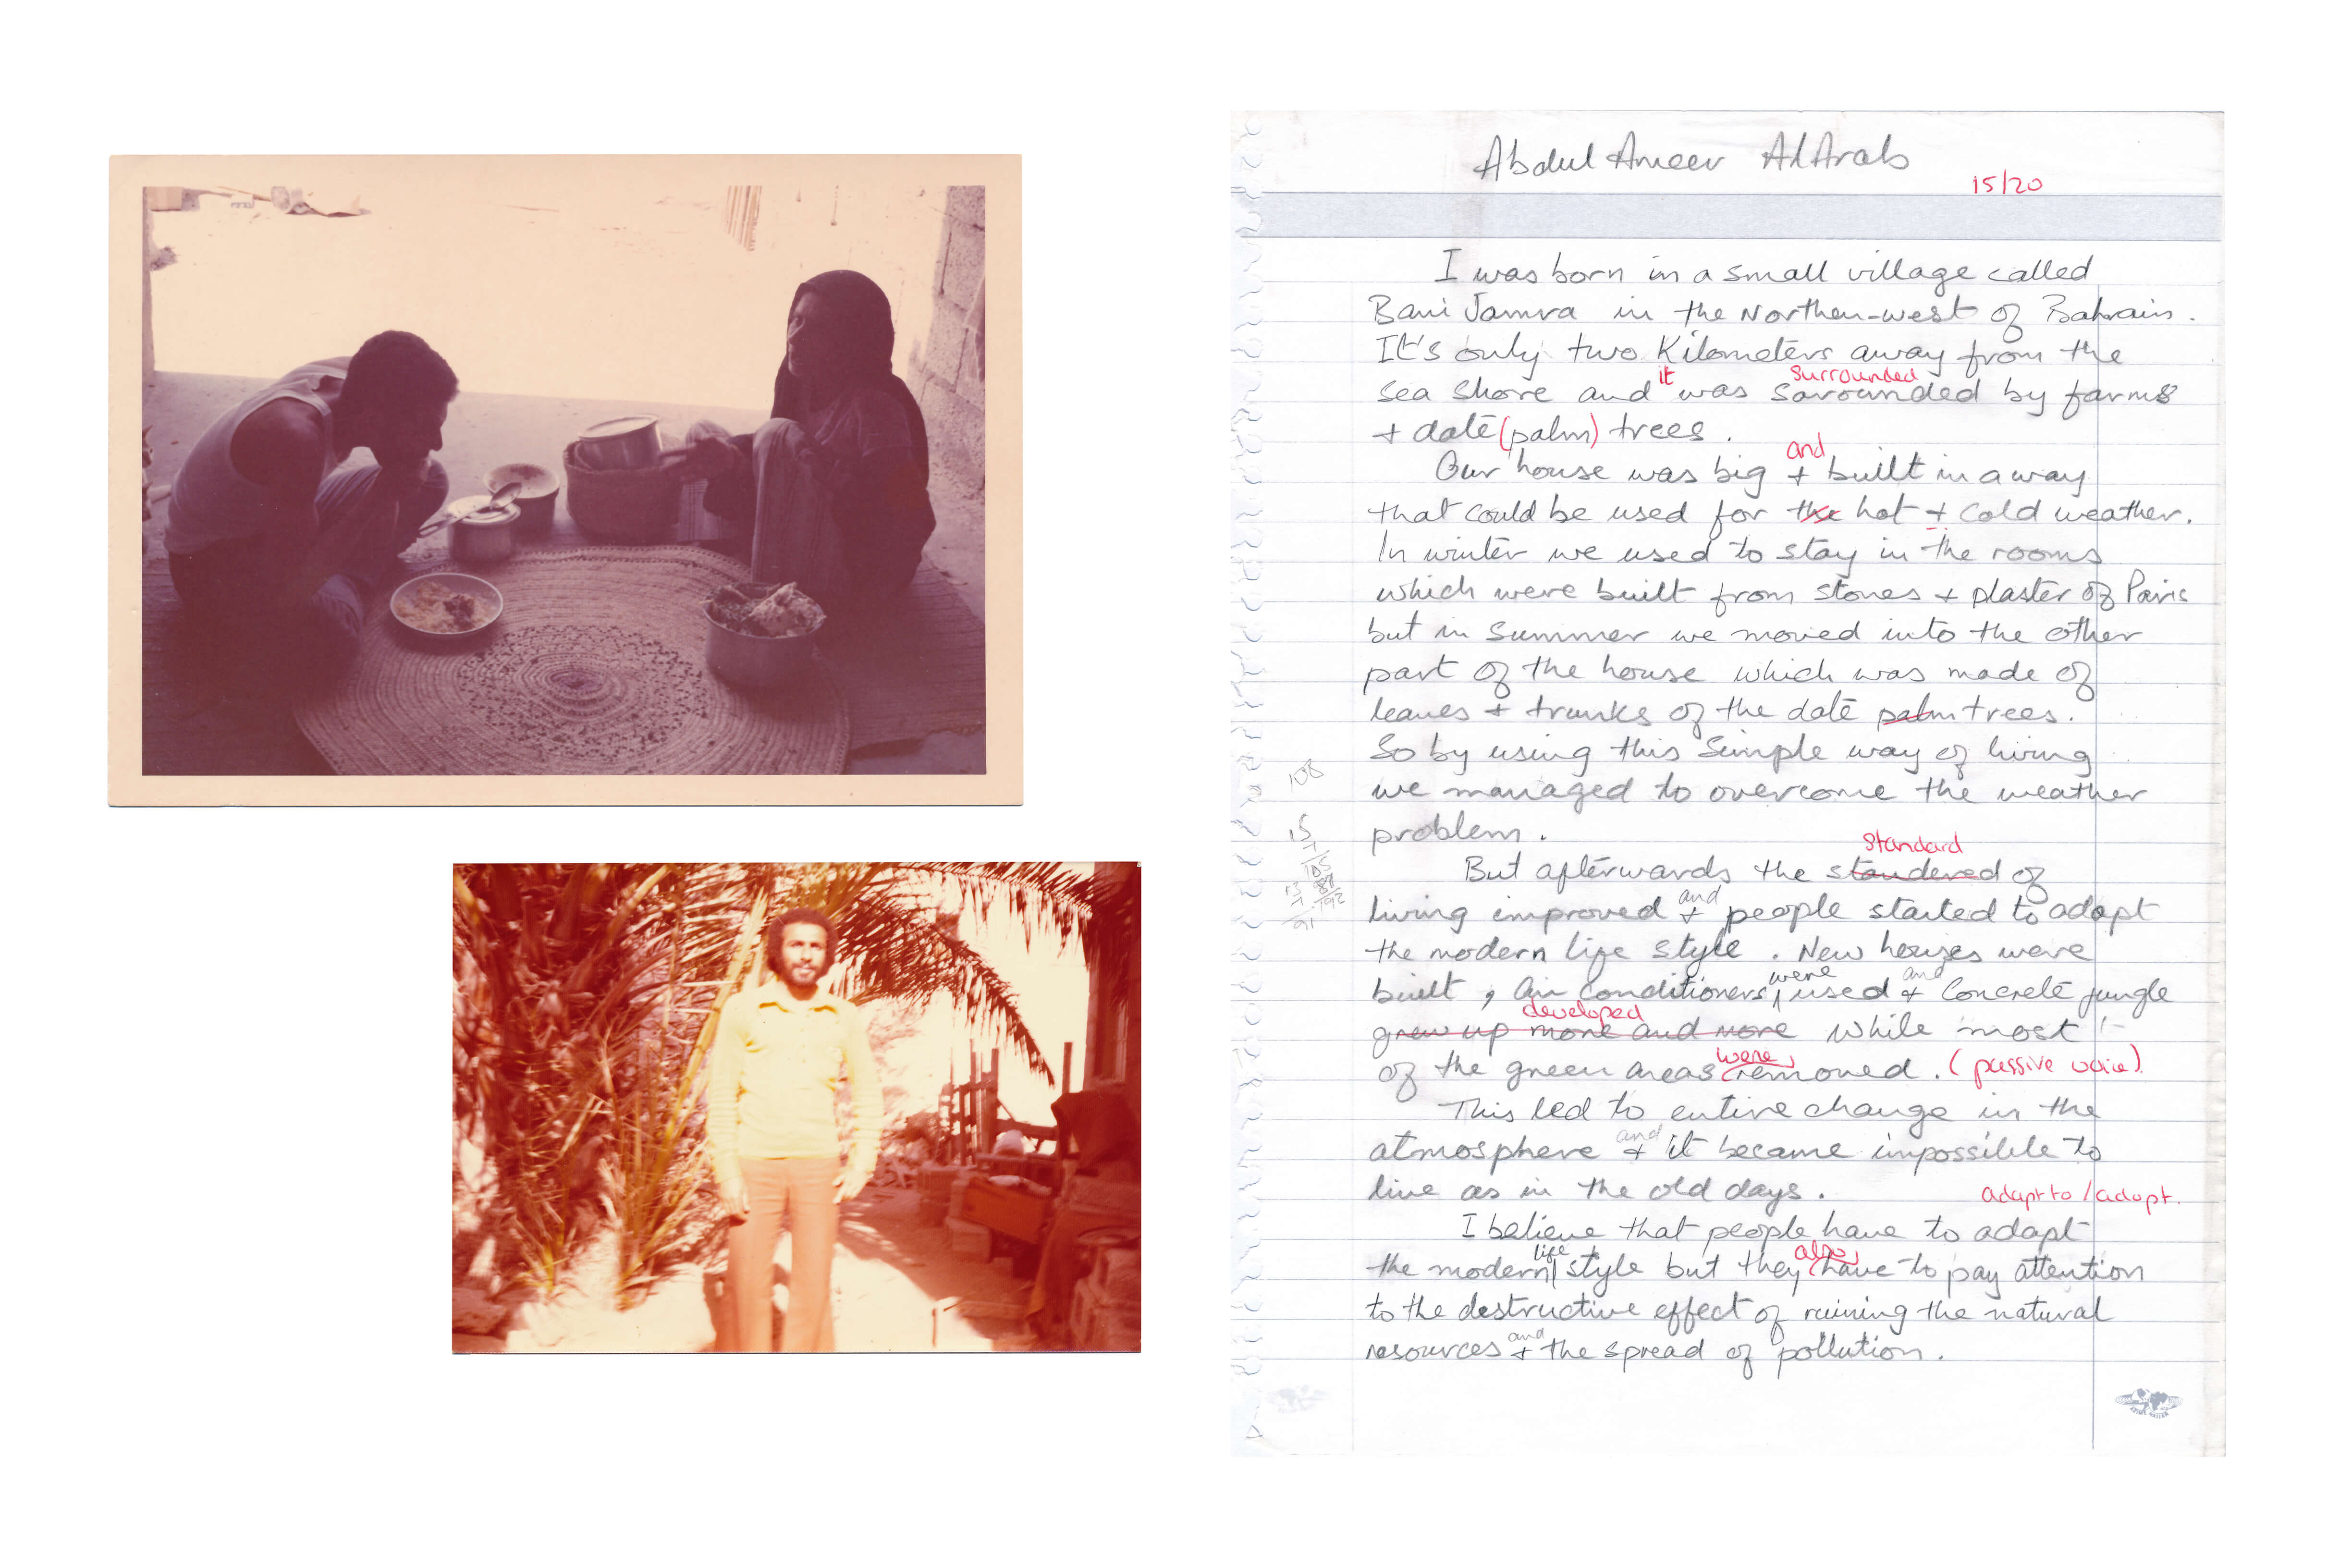 Abdul Ameer AlArab
15/20
I was born in a small village called
Bani Jamra in the Northen-west of Bahrain.
It's only two Kilometers away from the
it surrounded
sea shore and was sarounded by farms
+ date (palm) trees.
and
Our house was big + built in a way
that could be used for the hot + cold weather.
In winter we used to stay in the rooms
which were built from stones + plaster of Paris
but in summer we moved into the other
part of the house which was made of
leaves + trunks of the date palm trees.
So by using this simple way of living
we managed to overcome the weather
108
problem.
15
standard
But afterwards the standered of
and
living improved + people started to adapt
91
the modern life style. New houses were
were and
built, Air conditioners used + Concrete jungle
developed
grew up more and more while most
were
of the green areas removed. (passive voice)
This led to entire change in the
and
atmosphere + it became impossible to
live as in the old days.
adapt to / adopt.
I believe that people have to adapt
life also
the modern style but they have to pay attention
to the destructive effect of ruining the natural
and
resources + the spread of pollution.